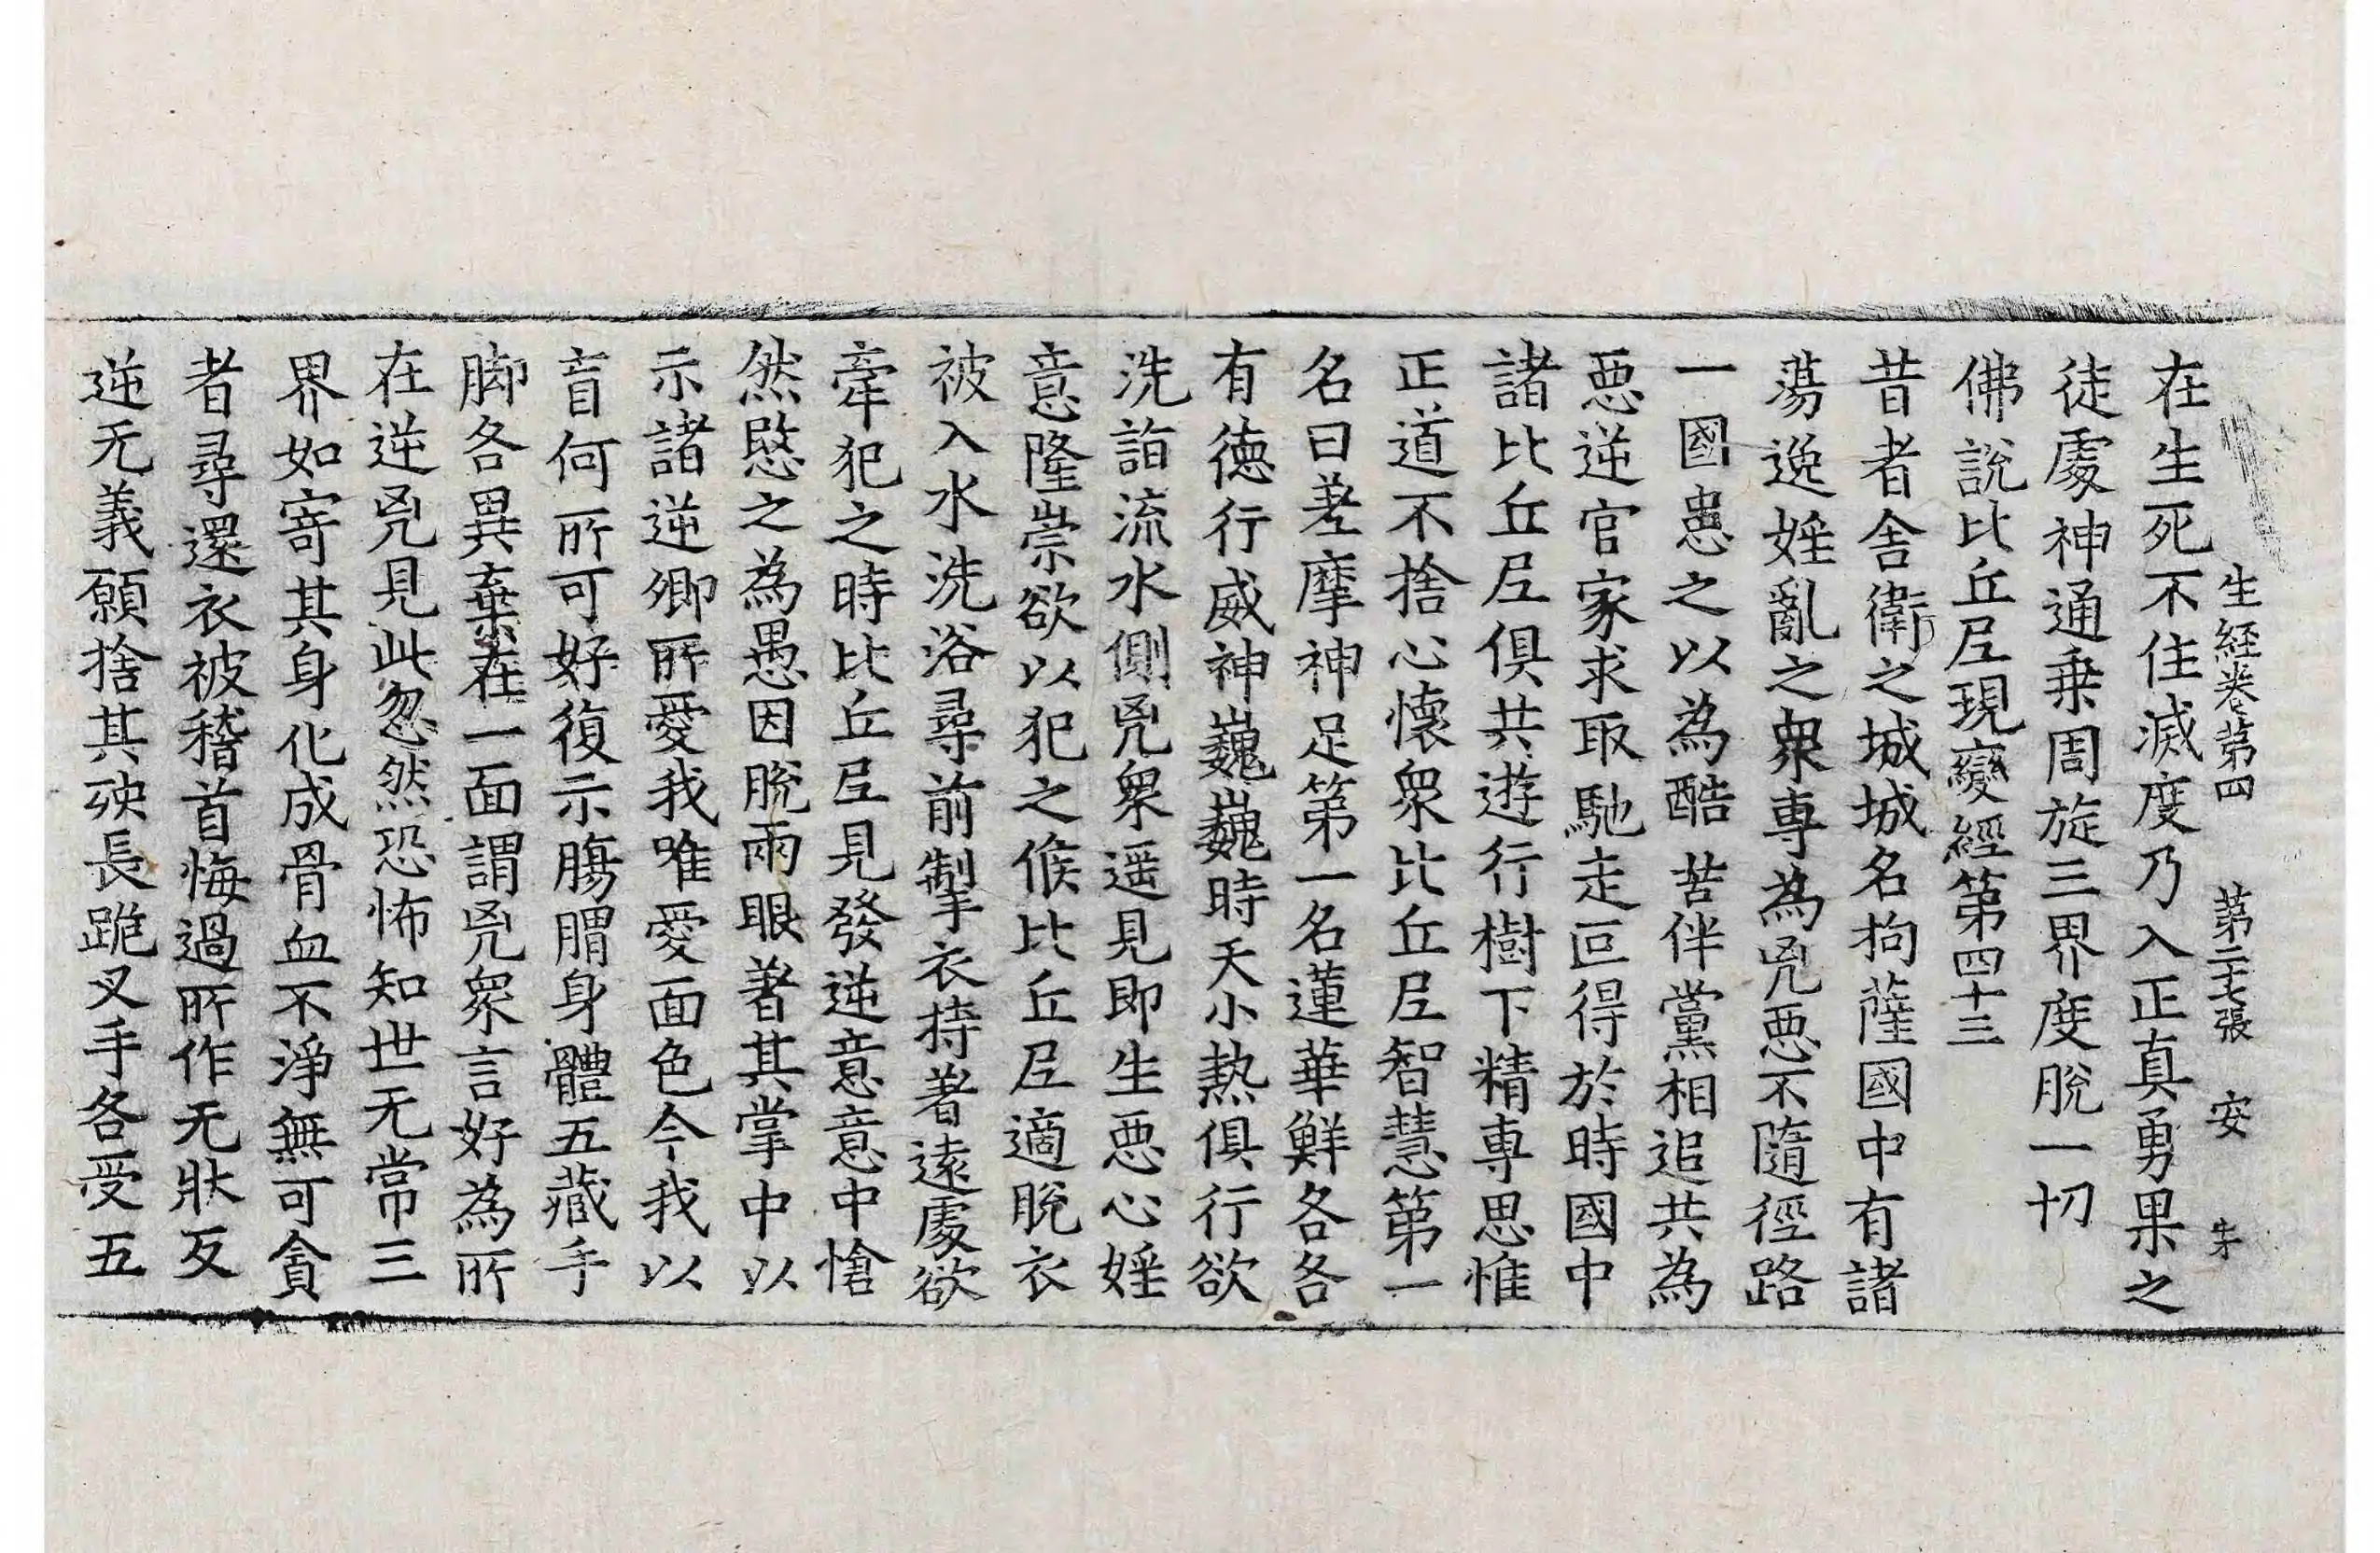 生経卷第四　第二十七張　安
在生死不住滅度乃入正真勇果之
徒處神通乗周旋三界度脫一切
佛說比丘尼現變經第四十三
昔者舍衛之城城名拘薩國中有諸
蕩逸婬亂之衆専為兇惡不隨徑路
一國患之以為酷苦伴黨相追共為
惡逆官家求取馳走叵得於時國中
諸比丘尼俱共遊行樹下精専思惟
正道不捨心懷衆比丘尼智慧第一
名曰差摩神足第一名蓮華鮮各各
有徳行威神巍巍時天小熱俱行欲
洗詣流水側兇衆遥見即生惡心婬
意隆崇欲以犯之候比丘尼適脫衣
被入水洗浴尋前掣衣持著遠處欲
牽犯之時比丘尼見發逆意意中愴
然愍之為愚因脫兩眼著其掌中以
示諸逆卿所愛我唯愛面色今我以
盲何所可好復示膓䏽身體五藏手
脚各異棄在一面謂兇衆言好為所
在逆兇見此忽然恐怖知世无常三
界如寄其身化成骨血不淨無可貪
者尋還衣被稽首悔過所作无狀反
逆无義願捨其殃長跪叉手各受五